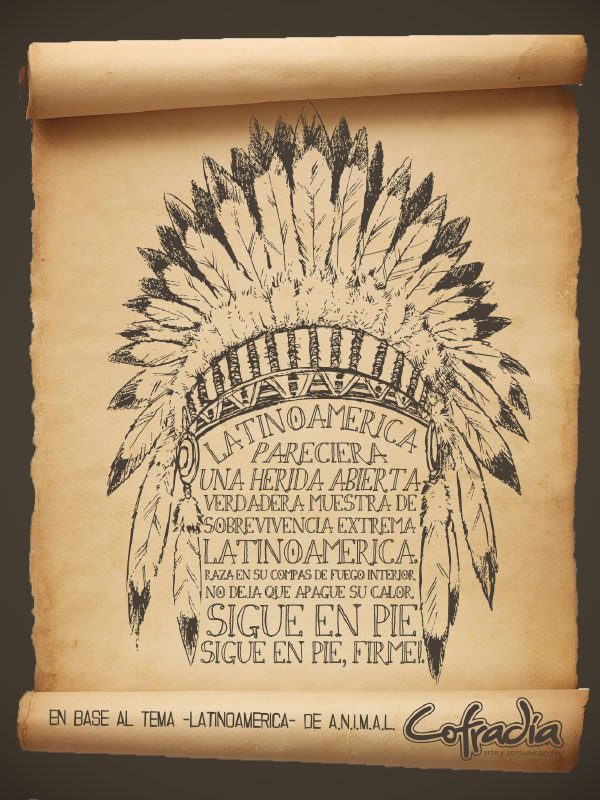 LATINOAMERICA
PARECIERA
UNA HERIDA ABIERTA
VERDADERA MUESTRA DE
SOBREVIVENCIA EXTREMA
LATINOAMERICA.
RAZA EN SU COMPAS DE FUEGO INTERIOR
NO DEJA QUE APAGUE SU CALOR.
SIGUE EN PIE
SIGUE EN PIE, FIRME!.
EN BASE AL TEMA -LATINOAMERICA- DE A.N.I.M.A.L.
Cofradia
arte y comunicación